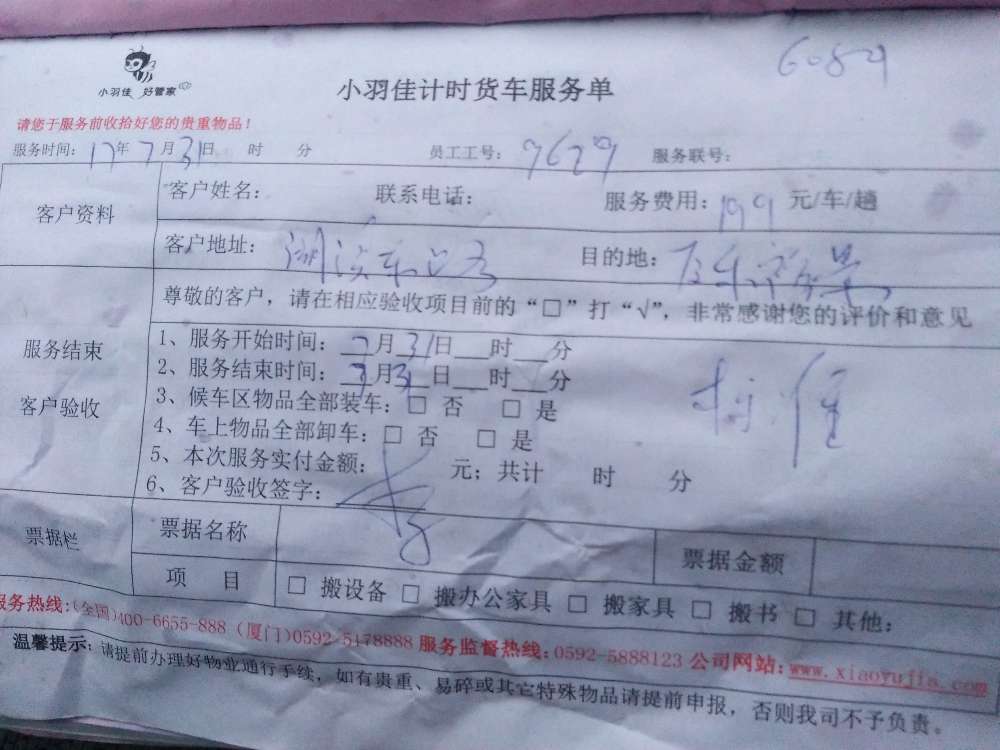 6084
小羽佳 好管家
小羽佳计时货车服务单
请您于服务前收拾好您的贵重物品！
服务时间：17年7月31日 时 分 员工工号：9629 服务联号：
客户资料 客户姓名： 联系电话： 服务费用：199 元/车/趟
客户地址： 湖滨东路 目的地：
尊敬的客户，请在相应验收项目前的“□”打“√”，非常感谢您的评价和意见
服务结束
客户验收
1、服务开始时间：7月31日___时___分
2、服务结束时间：7月31日___时___分
3、候车区物品全部装车：□ 否 □ 是
4、车上物品全部卸车：□ 否 □ 是
5、本次服务实付金额： 元；共计 时 分
6、客户验收签字：
票据栏 票据名称 票据金额
项 目 □ 搬设备 □ 搬办公家具 □ 搬家具 □ 搬书 □ 其他：
服务热线：(全国)400-6655-888 (厦门)0592-5178888 服务监督热线：0592-5888123 公司网站：www.xiaoyujia.com
温馨提示：请提前办理好物业通行手续，如有贵重、易碎或其它特殊物品请提前申报，否则我司不予负责。